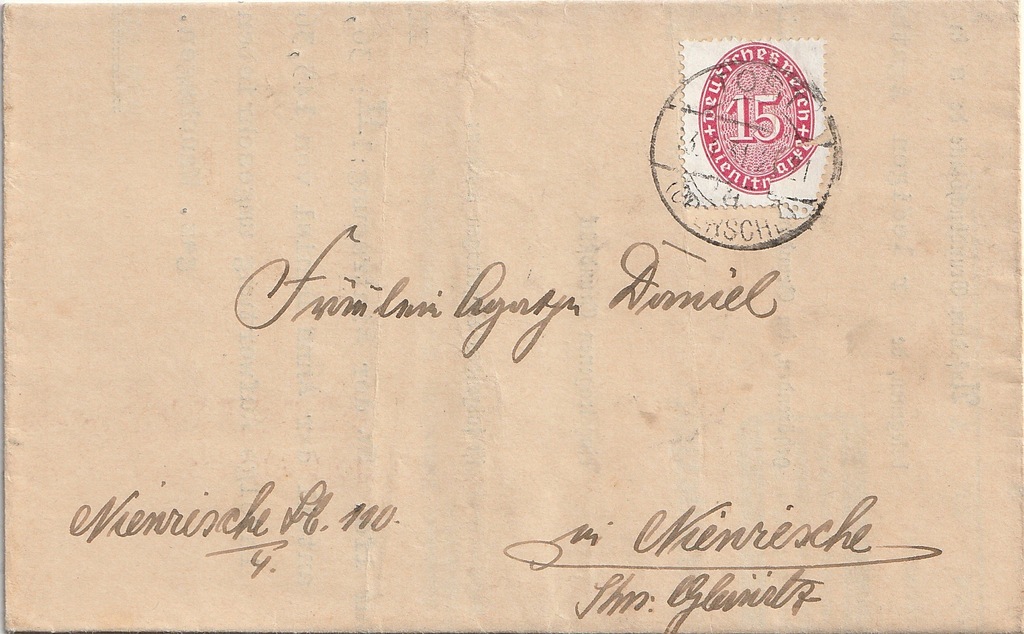 Deutsches Reich
15
Dienstmarke
(OBERSCHL
Fräulein Agathe Daniel
Nienrische Bl. 110.
4.
in Nienrische
Gleiwitz